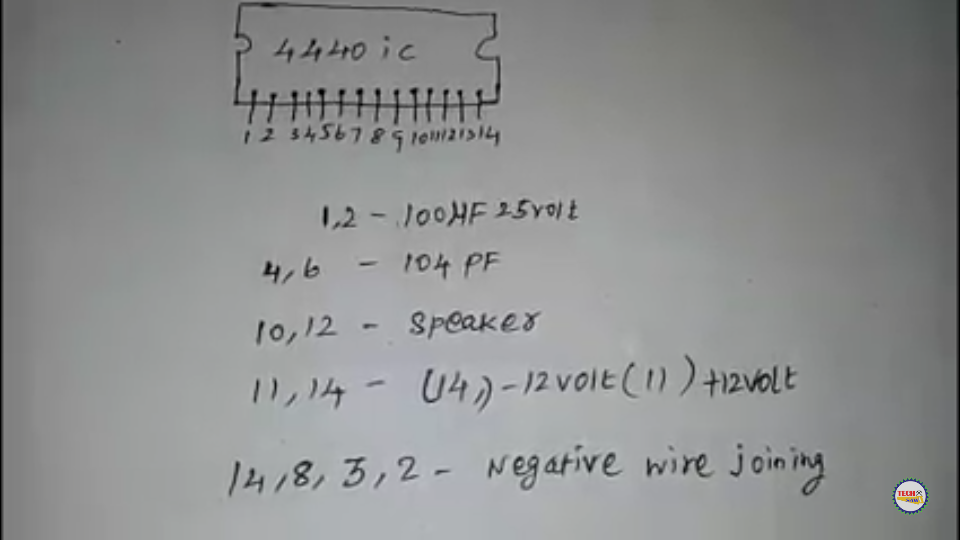 4440 ic
1 2 3 4 5 6 7 8 9 10 11 12 13 14
1,2 - 100µF 25volt
4,6 - 104 PF
10,12 - Speaker
11,14 - (14,) -12volt (11) +12volt
14,8,3,2 - Negative wire joining
TECH